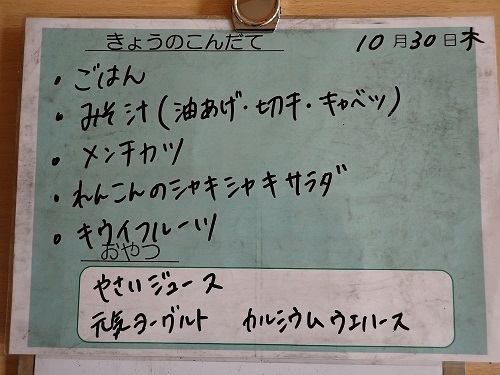 きょうのこんだて 10月30日木
・ごはん
・みそ汁(油あげ・切干・キャベツ)
・メンチカツ
・れんこんのシャキシャキサラダ
・キウイフルーツ
おやつ
やさいジュース
元気ヨーグルト カルシウムウエハース